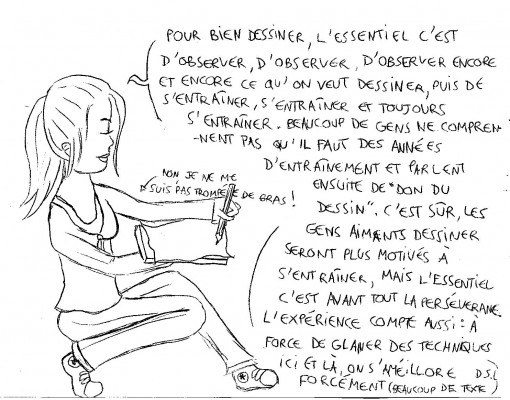 POUR BIEN DESSINER, L'ESSENTIEL C'EST
D'OBSERVER, D'OBSERVER, D'OBSERVER ENCORE
ET ENCORE CE QU'ON VEUT DESSINER, PUIS DE
S'ENTRAÎNER, S'ENTRAÎNER ET TOUJOURS
S'ENTRAÎNER. BEAUCOUP DE GENS NE COMPREN-
-NENT PAS QU'IL FAUT DES ANNÉES
D'ENTRAÎNEMENT ET PARLENT
ENSUITE DE "DON DU
DESSIN". C'EST SÛR, LES
GENS AIMANTS DESSINER
SERONT PLUS MOTIVÉS À
S'ENTRAÎNER, MAIS L'ESSENTIEL
C'EST AVANT TOUT LA PERSÉVERANCE.
L'EXPÉRIENCE COMPTE AUSSI : À
FORCE DE GLANER DES TECHNIQUES
ICI ET LÀ, ON S'AMÉILLORE
FORCÉMENT (BEAUCOUP DE TEXTE) D.S.L
NON JE NE ME
SUIS PAS TROMPÉE DE BRAS !